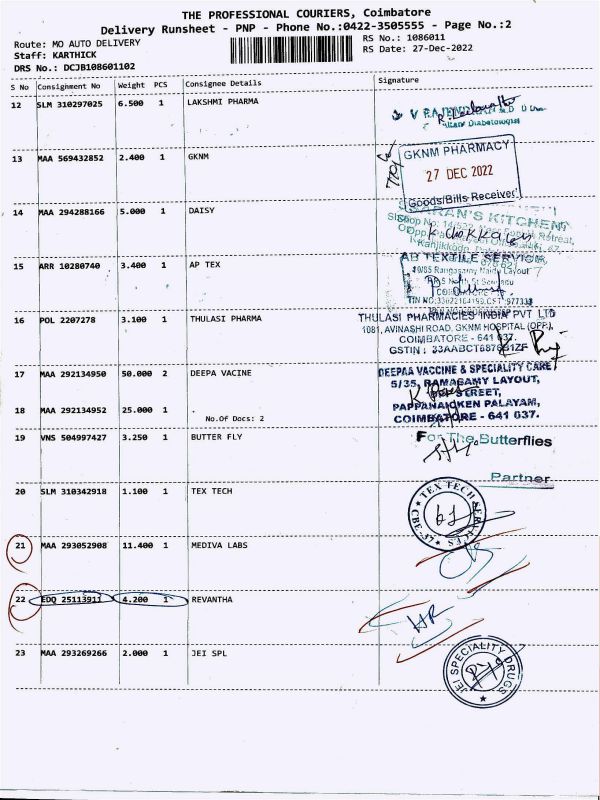 THE PROFESSIONAL COURIERS, Coimbatore
Delivery Runsheet - PNP - Phone No.:0422-3505555 - Page No.:2
Route: MO AUTO DELIVERY
RS No.: 1086011
Staff: KARTHICK
RS Date: 27-Dec-2022
DRS No.: DCJB108601102
S No Consignment No Weight PCS Consignee Details Signature
12 SLM 310297025 6.500 1 LAKSHMI PHARMA
13 MAA 569432852 2.400 1 GKNM
GKNM PHARMACY
27 DEC 2022
Goods/Bills Received
14 MAA 294288166 5.000 1 DAISY
KITCHEN
15 ARR 10280740 3.400 1 AP TEX
AB TEXTILE SERVICE
16 POL 2207278 3.100 1 THULASI PHARMA
THULASI PHARMACIES INDIA PVT LTD
1081, AVINASHI ROAD, GKNM HOSPITAL (OPP),
COIMBATORE - 641 037.
GSTIN :
17 MAA 292134950 50.000 2 DEEPA VACINE
DEEPAA VACCINE & SPECIALITY CARE
5/35, RAMASAMY LAYOUT,
STREET,
PAPPANAICKEN PALAYAM,
COIMBATORE - 641 037.
18 MAA 292134952 25.000 1
No.Of Docs: 2
19 VNS 504997427 3.250 1 BUTTER FLY
For The Butterflies
Partner
20 SLM 310342918 1.100 1 TEX TECH
TEX TECH
CBE-37
21 MAA 293052908 11.400 1 MEDIVA LABS
22 EDQ 25113911 4.200 1 REVANTHA
HR
23 MAA 293269266 2.000 1 JEI SPL
JEI SPECIALITY DRUGS